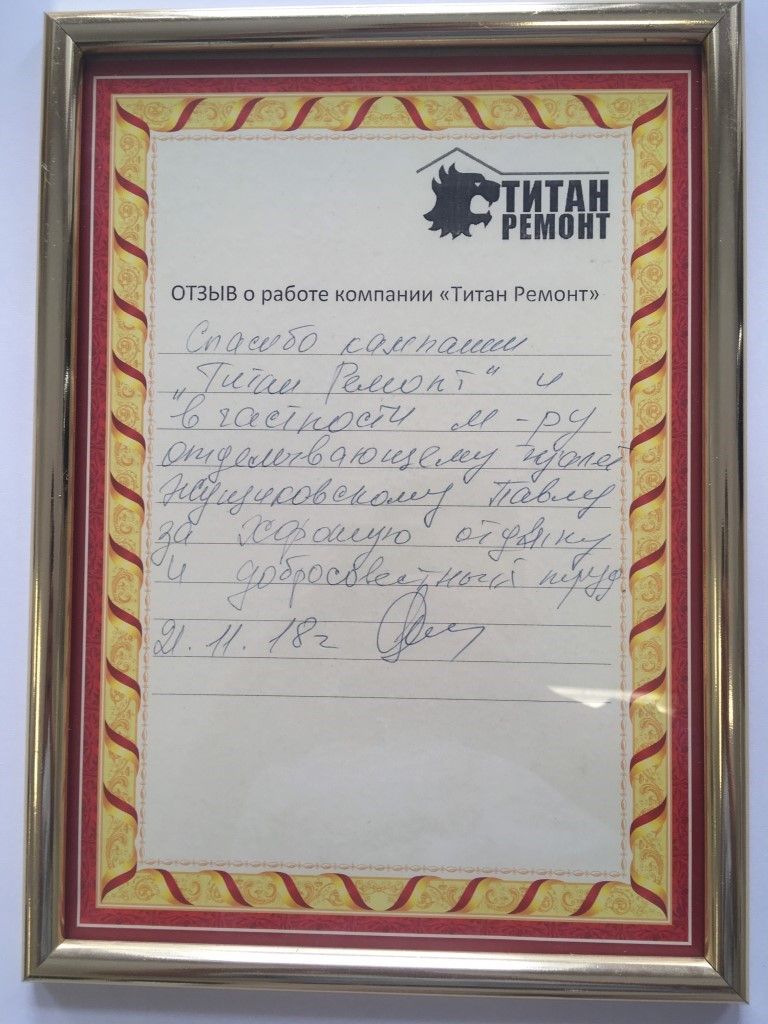 ТИТАН
РЕМОНТ
ОТЗЫВ о работе компании «Титан Ремонт»
Спасибо кампании
„Титан Ремонт" и
в частности м-ру
отделывающему
Павлу
за хорошую отделку
и добросовестный труд
21.11.18г